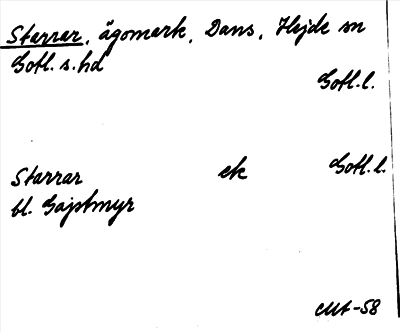 Starrar, ägomark, Dans, Hejde sn
Gotl. s. hd
Gotl. l.
Starrar ek Gotl. l.
bl. Gajstmyr
-58